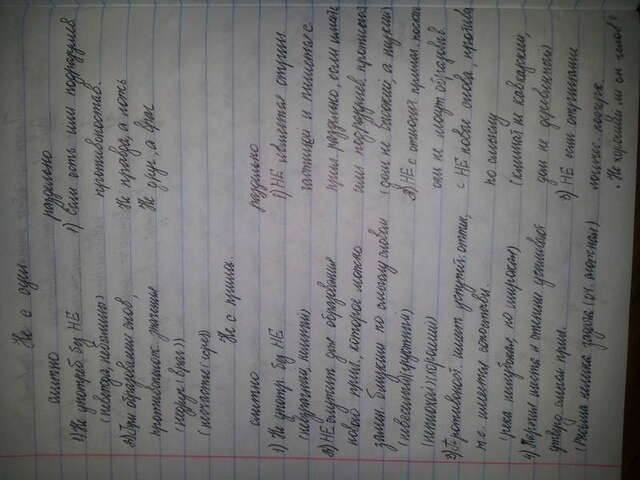 Не с сущ.
слитно
1) Не употреб. без НЕ
(невежда, небылицы)
2) При образовании слов,
противополож. значения
(недруг (враг))
(несчастье (горе))
раздельно
1) Если есть или подразумев.
противопостав.
Не правда, а ложь
Не друг, а враг
Не с прилаг.
слитно
1) Не употр. без НЕ
2) НЕ служит для образования
нового прил., которое можно
замен. близким по смыслу словом
(невеселый) (грустный)
(неплохой) (хороший)
3) Противопост. имеет уступит. оттен.,
т.е. имеется сопоставл.
(река неглубокая, но широкая)
4) Наречия места и степени усиливают
утверд. смысл прил.
(Весьма нелегка задача (оч. сложная)
раздельно
1) НЕ является отриц.
частицей и пишется с
прил. раздельно, если имеется
или подразумев. противопост
(дом не высокий, а низкий)
2) НЕ с относит прилаг. поскол
они не могут образовыв.
с НЕ новые слова, противоп
по смыслу
(климат не кавказский,
дом не деревянный)
3) НЕ если отрицание
логичес. подчерк.
Не хороший ли он челов ?